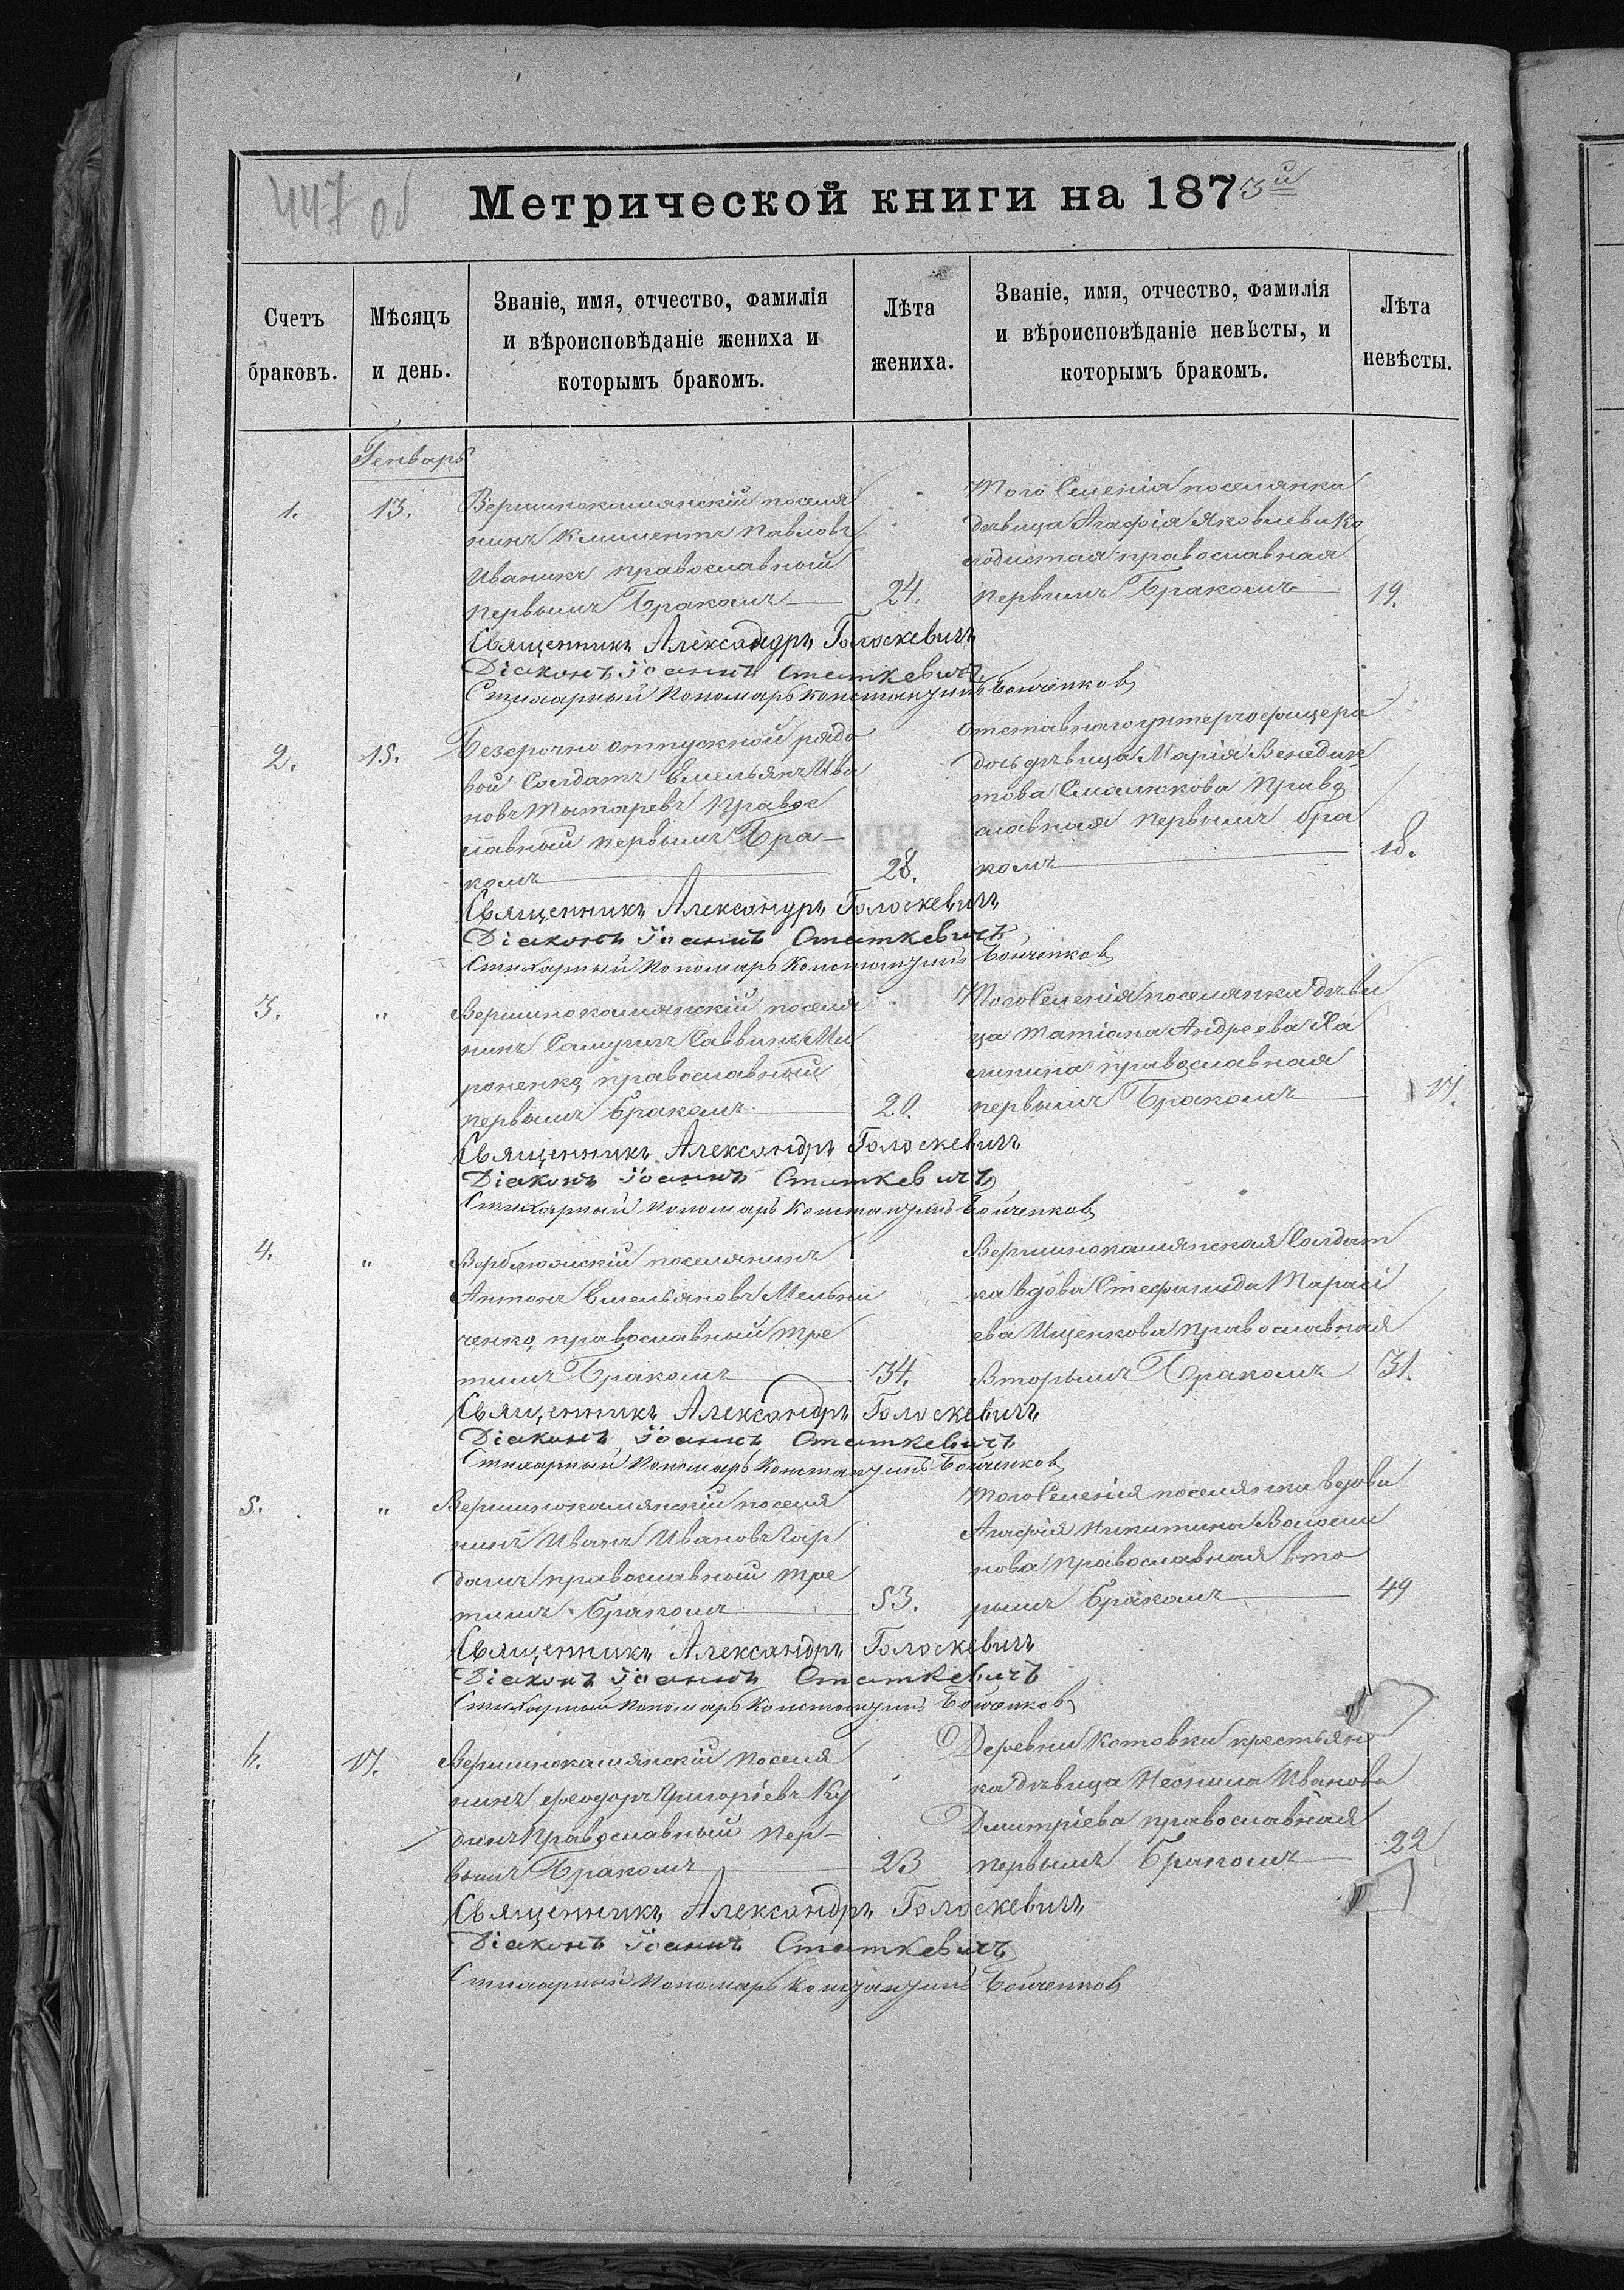 447 об
Метрической книги на 1873й
Счетъ браковъ.
Мѣсяцъ и день.
Званіе, имя, отчество, фамилія и вѣроисповѣданіе жениха и которымъ бракомъ.
Лѣта жениха.
Званіе, имя, отчество, фамилія и вѣроисповѣданіе невѣсты, и которымъ бракомъ.
Лѣта невѣсты.
Генварь
1. 13.
Вершинокамянскій поселя
нинъ Климентъ Павловъ
Иваникъ православный
первымъ Бракомъ 24.
Того Селенія поселянка
дѣвица Агафія Яковлева Ко
лодистая православная
первымъ Бракомъ 19.
Священникъ Александръ Голоскевичъ
Діаконъ Іоаннъ Статкевичъ
Стихарный Пономарь Константинъ Бойченковъ
2. 15.
Безсрочно отпускной рядо
вой Солдатъ Емельянъ Ива
новъ Тытаревъ Правос
лавный первымъ Бра-
комъ 28.
Отставнаго унтерофицера
дочь дѣвица Марія Венедик
това Смалюкова Право
славная первымъ бра
комъ 18.
Священникъ Александръ Голоскевичъ
Діаконъ Іоаннъ Статкевичъ
Стихарный Пономарь Константинъ Бойченковъ
3. "
Вершинокамянскій поселя
нинъ Самуилъ Саввинъ Ми
роненко, православный
первымъ бракомъ 20.
Того Селенія поселянка дѣви
ца Татіана Андреева Ха
липина православная
первымъ Бракомъ 17.
Священникъ Александръ Голоскевичъ
Діаконъ Іоаннъ Статкевичъ
Стихарный Пономарь Константинъ Бойченковъ
4. "
Верблюжскій поселянинъ
Антонъ Емельяновъ Мельни
ченко, православный тре
тимъ Бракомъ 34.
Вершинокамянская Солдат
ка вдова Стефанида Тарасі
ева Ищенкова православная
Вторымъ Бракомъ 31.
Священникъ Александръ Голоскевичъ
Діаконъ Іоаннъ Статкевичъ
Стихарный Пономарь Константинъ Бойченковъ
5. "
Вершинокамянскій поселя
нинъ Иванъ Ивановъ
православный тре
тимъ Бракомъ 53.
Того Селенія поселянка вдова
Агафія Никитина Волоши
нова Православная вто
рымъ Бракомъ 49
Священникъ Александръ Голоскевичъ
Діаконъ Іоаннъ Статкевичъ
Стихарный Пономарь Константинъ Бойченковъ
6. 17.
Вершинокамянскій Поселя
нинъ Феодоръ Григоріевъ Ку
динъ Православный Пер-
вымъ Бракомъ 23
Деревни Котовки крестьян
ка дѣвица Неонила Иванова
Дмитріева православная
первымъ Бракомъ 22
Священникъ Александръ Голоскевичъ
Діаконъ Іоаннъ Статкевичъ
Стихарный Пономарь Константинъ Бойченковъ